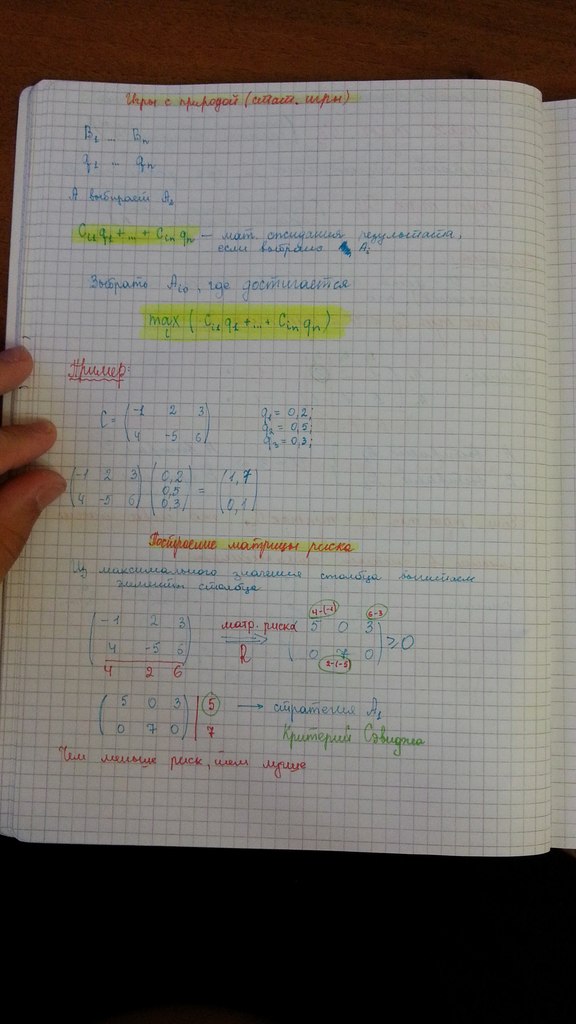 Игры с природой (стат. игры)
B₁ ... Bₙ
q₁ ... qₙ
А выбирает Aᵢ
Cᵢ₁q₁+...+Cᵢₙqₙ – мат. ожидания результата,
если выбрано Aᵢ
Выбрать Aᵢ₀, где достигается
max (Cᵢ₁q₁+...+Cᵢₙqₙ)
i
Пример:
C = (-1 2 3
4 -5 6)
q₁ = 0,2;
q₂ = 0,5;
q₃ = 0,3;
(-1 2 3
4 -5 6) (0,2
0,5
0,3) = (1,7
0,1)
Построение матрицы риска
Из максимального значения столбца вычитаем
элементы столбца
(-1 2 3
4 -5 6)
4 2 6
матр. риска
R
4-(-1) 6-3
(5 0 3
0 7 0) ≥ 0
2-(-5)
(5 0 3) | 5 → стратегия A₁
(0 7 0) | 7 Критерий Сэвиджа
Чем меньше риск, тем лучше